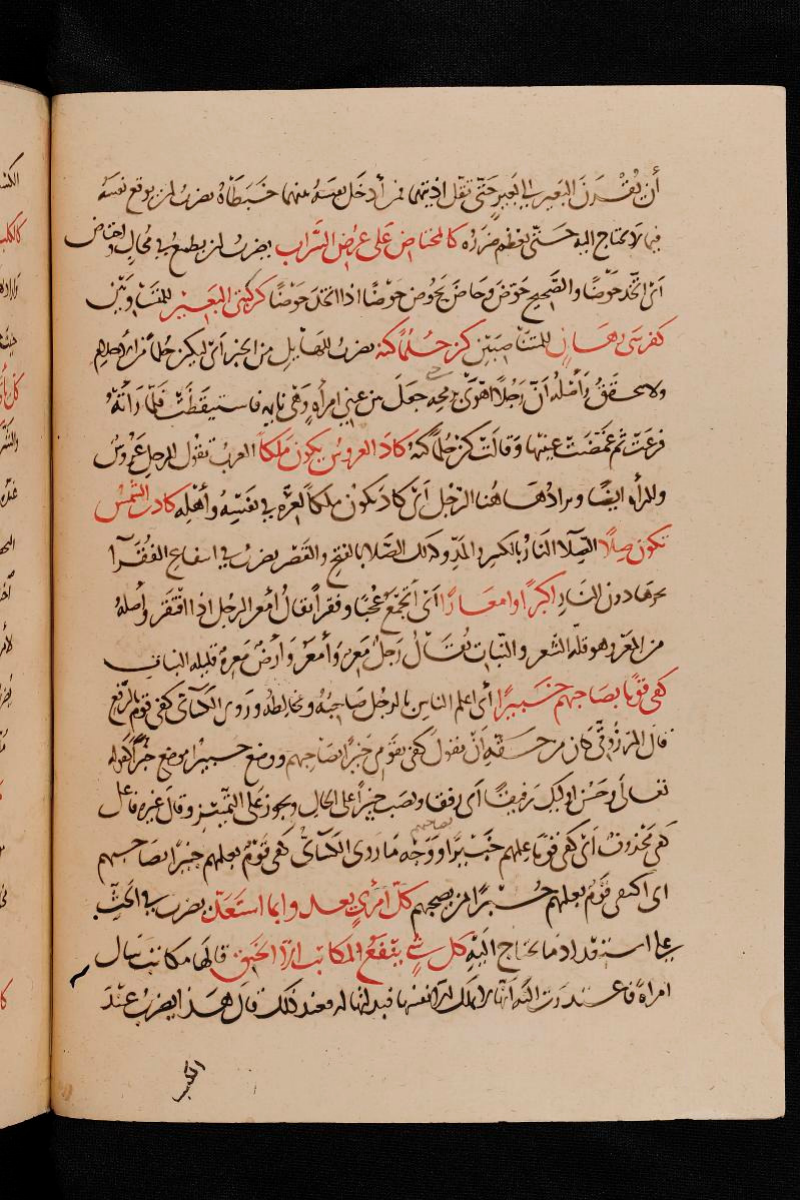 أن يُقْرَنَ البَعير الى البَعير حتّى تقل اذيتهما فمن أدخَل نفسَهُ بينهما خَبَطَاهُ يضربُ لمن يوقع نفسَهُ
فيما لا يحتاج اليه حَتّى يعظم ضررُه كالمختاضِ عَلى عرُضِ السَّراب يضربُ لمن يطمعُ في مُحالٍ واختاض
اى اتّخذ حَوْضًا والصَّحيح حَوّضَ وحَاضَ يحُوض حَوْضًا اذا اتخذ حَوْضًا كركبتى البَعِيْر للمتساويَيْن
كفرسَى رهَانٍ للمتناصِبَيْن كن حُلُمًا كنهْ يضربُ للهايلِ من الخبر اى ليكن حُلمًا من
ولا يتحققُ وأصْلهُ أنّ رَجُلاً اهوى برمحه حتى جعَلَ بين عيني امرأةٍ وهى نايمه فاستيقظَتْ فلمّا رأتْهُ
فزعَتْ ثم غمّضَتْ عينها وقالتْ كن حُلمًا كنهْ كادَ العروسُ يكون مَلكاً العربُ تقول للرجل عرُوسٌ
وللمرأه ايضًا ويرادُ هَاهُنا الرّجُل اى كاد يكون ملكاً لعزّه في نفسِهُ وأهْلِه كادت الشمسُ
تكون صِلاً الصِّلا النارُ بالكسر والمدّ وكذلك الصَّلا بالفتح والقصْر يضربُ في انتفاع الفُقَرآ
بحرها دون النّار اكبرًا وامعَارًا أى اتجمَع عُجْبًا وفقراً يُقالُ أمْعر الرجُل اذا افتقر وأصلهُ
من المعَر وهو قلّه الشعر والنّبات يُقَالُ رَجلٌ مَعِرٌ وَأمعَرٌ وَأرضٌ مَعِرةٌ قليله النباتِ
كفى قومًا بصاحبهم خَبيرًا أى اعلم الناسِ بالرجُل صَاحِبُهُ ومخالطهُ وروى الكسَآى كفى قومٌ بالرّفع
قالَ المرزُوقى كان من حَقّهِ أنْ يقول كفى بقومٍ خبيراً بصَاحبهم ووضع خبيرا موضع خبرآ كقوله
تعالى وَحَسُنَ اوليك رَفيقًا أى رفقا ونصَب خبيراً على الحال ويجوز على التّمييز وقالَ غيره فاعل
كفى محذوفٌ اى كفى قومًا علمُهم خَبيْرًا بصاحبهم وَوَجْه مَا روى الكسَآىُ كفى قَوْمٌ بعلمهم خبيرًا بصَاحبهم
اى اكتفى قَوْمٌ بعلمهم خُبْرًا بمن يصحبهم كلّ امْرىٍ بعدو وابما استَعَدّ يضربُ في الحَثّ
على استعْدادِ مَا يحتاج اليْهِ كلّ شىْءٍ ينفَعُ المكاتبَ الاّ الخَنِقْ قالَها مكاتبٌ سَال
امراةً فاعتذرَتْ اليْهِ أنّها لا تملك الاّ نفسها فبذلتها له فعند ذلك قالَ هَذا يضربُ عِنْدَ
الكسب